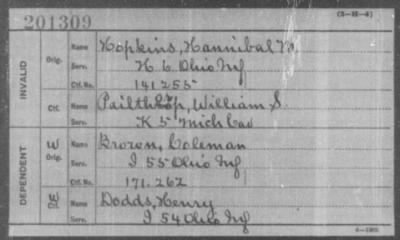 201309
(3-H-4)
INVALID
Orig.
Name Hopkins, Hannibal M.
Serv. H 6 Ohio Inf
Ctf. No. 141255
Ctf.
Name Pailthorp, William S.
Serv. K 5 Mich Cav
DEPENDENT
W Orig.
Name Brown, Coleman
Serv. I 55 Ohio Inf
Ctf. No. 171.262
W Ctf.
Name Dodds, Henry
Serv. I 54 Ohio Inf